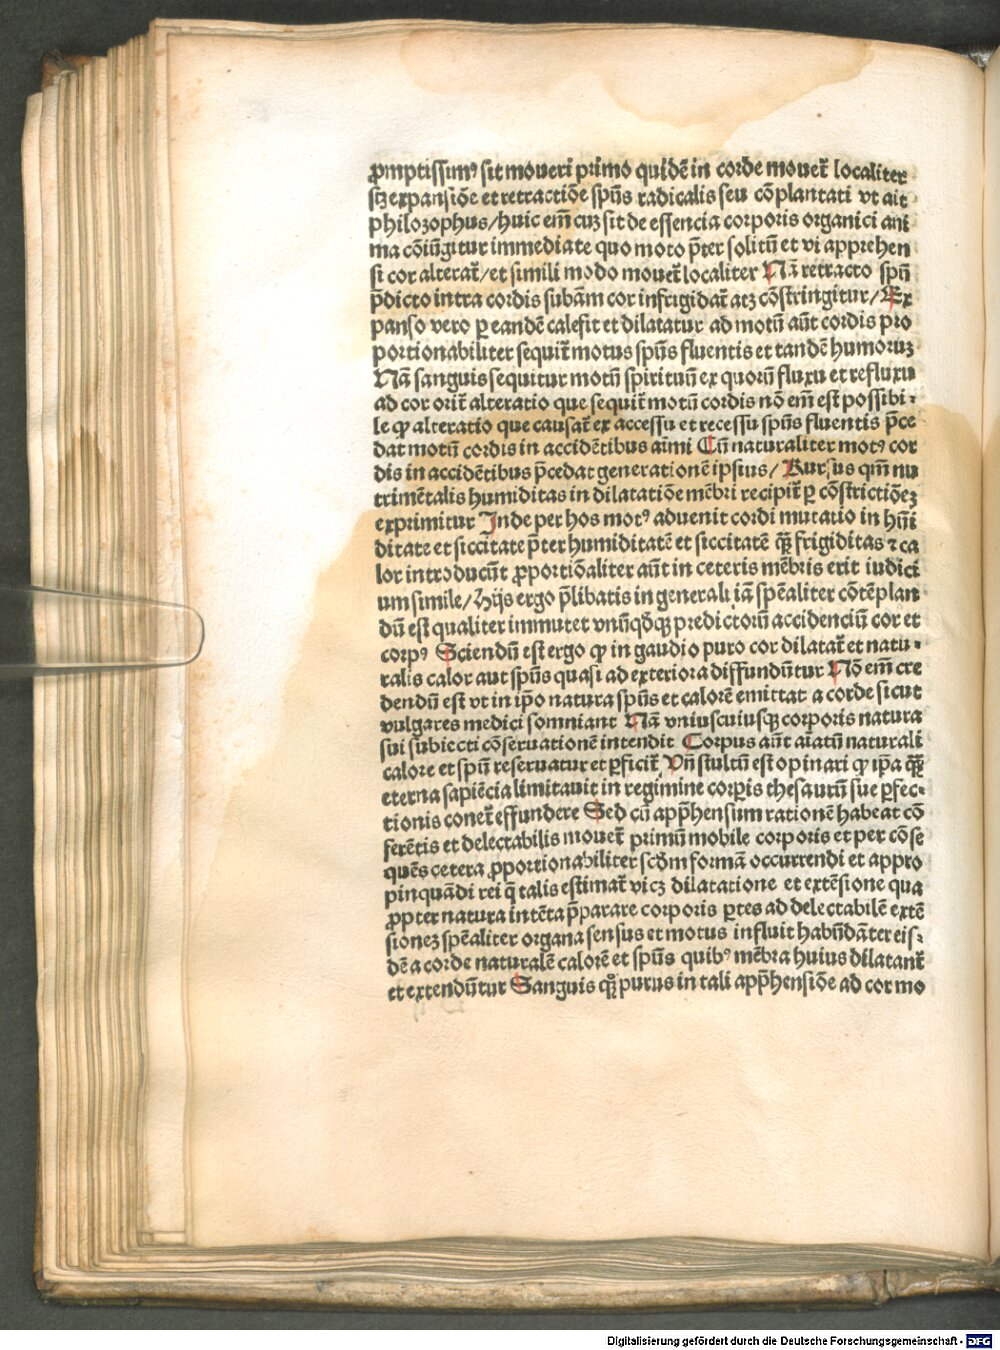 ꝓmptissimꝰ sit moueri primo quidē in corde mouet̄ localiter
sꝫ expansiōe et retractiōe spūs radicalis seu cōplantati vt ait
philozophus/huic em̄ cuȝ sit de essencia corporis organici ani
ma cōiūgitur immediate quo moto p̄ter solitū et vi apprehen
si cor alterat̄/et simili modo mouet̄ localiter Nā retracto spū
p̄dicto intra cordis subam̄ cor infrigidat̄ atꝫ cōstringitur/Ex
panso vero ꝑ eandē calefit et dilatatur ad motū aūt cordis pro
portionabiliter sequit̄ motus spūs fluentis et tandē humoruȝ
Nā sanguis sequitur motū spirituū ex quorū fluxu et refluxu
ad cor orit̄ alteratio que sequit̄ motū cordis nō em̄ est possibi⸗
le ꝙ alteratio que causat̄ ex accessu et recessu spūs fluentis p̄ce
dat motū cordis in accidētibus aīmi Cū naturaliter motꝰ cor
dis in accidētibus p̄cedat generationē ipsius/ Rursus qm̄ nu
trimētalis humiditas in dilatatiōe mēbri recipit̄ ꝑ cōstrictiōeȝ
exprimitur Inde per hos motꝰ aduenit cordi mutatio in hūi
ditate et siccitate p̄ter humiditatē et siccitatē q̄ꝫ frigiditas ⁊ ca
lor introducūt ꝓportiōaliter aūt in ceteris mēbris erit iudici
um simile/Hijs ergo p̄libatis in generali iā spēaliter cōtēplan
dū est qualiter immutet vnūqḋqꝫ predictorū accidenciū cor et
corpꝰ Sciendū est ergo ꝙ in gaudio puro cor dilatat̄ et natu⸗
ralis calor aut spūs quasi ad exteriora diffundūtur Nō em̄ cre
dendū est vt in ip̄o natura spūs et calorē emittat a corde sicut
vulgares medici somniant Nā vniuscuiusqꝫ corporis natura
sui subiecti cōseruationē intendit Corpus aūt aīatū naturali
calore et spū reseruatur et ꝑficit̄ Vn̄ stultū est opinari ꝙ ip̄a q̄ꝫ
eterna sapiēcia limitauit in regimine corꝑis thesaurū sue ꝑfec⸗
tionis conet̄ effundere Sed cū app̄hensum rationē habeat cō
ferētis et delectabilis mouet̄ primū mobile corporis et per cōse
quēs cetera ꝓportionabiliter scḋm formā occurrendi et appro
pinquādi rei q̄ talis estimat̄ vicȝ dilatatione et extēsione qua
ꝓpter natura intēta p̄parare corporis ꝑtes ad delectabilē extē
sioneȝ spēaliter organa sensus et motus influit habūdāter eis⸗
dē a corde naturalē calorē et spūs quibꝰ mēbra huius dilatant̄
et extendūtur Sanguis qꝫ purus in tali app̄hensiōe ad cor mo
Digitalisierung gefördert durch die Deutsche Forschungsgemeinschaft - DFG